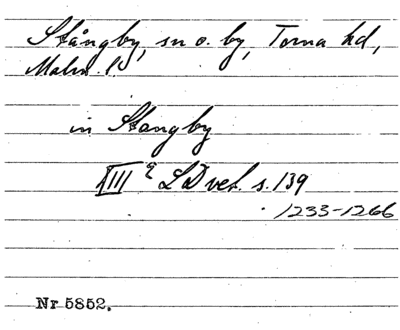 Stångby, sn o. by, Torna hd,
Malm. l.
in Stangby
XIII LD vet. s. 139
1233-1266
Nr 5852.